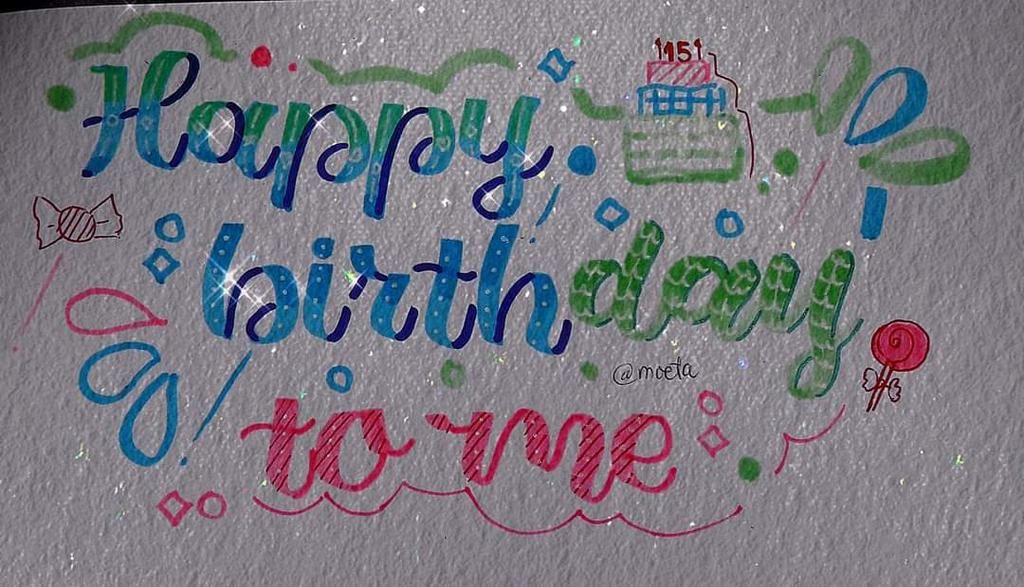 15
Happy
birthday
@moeta
to me